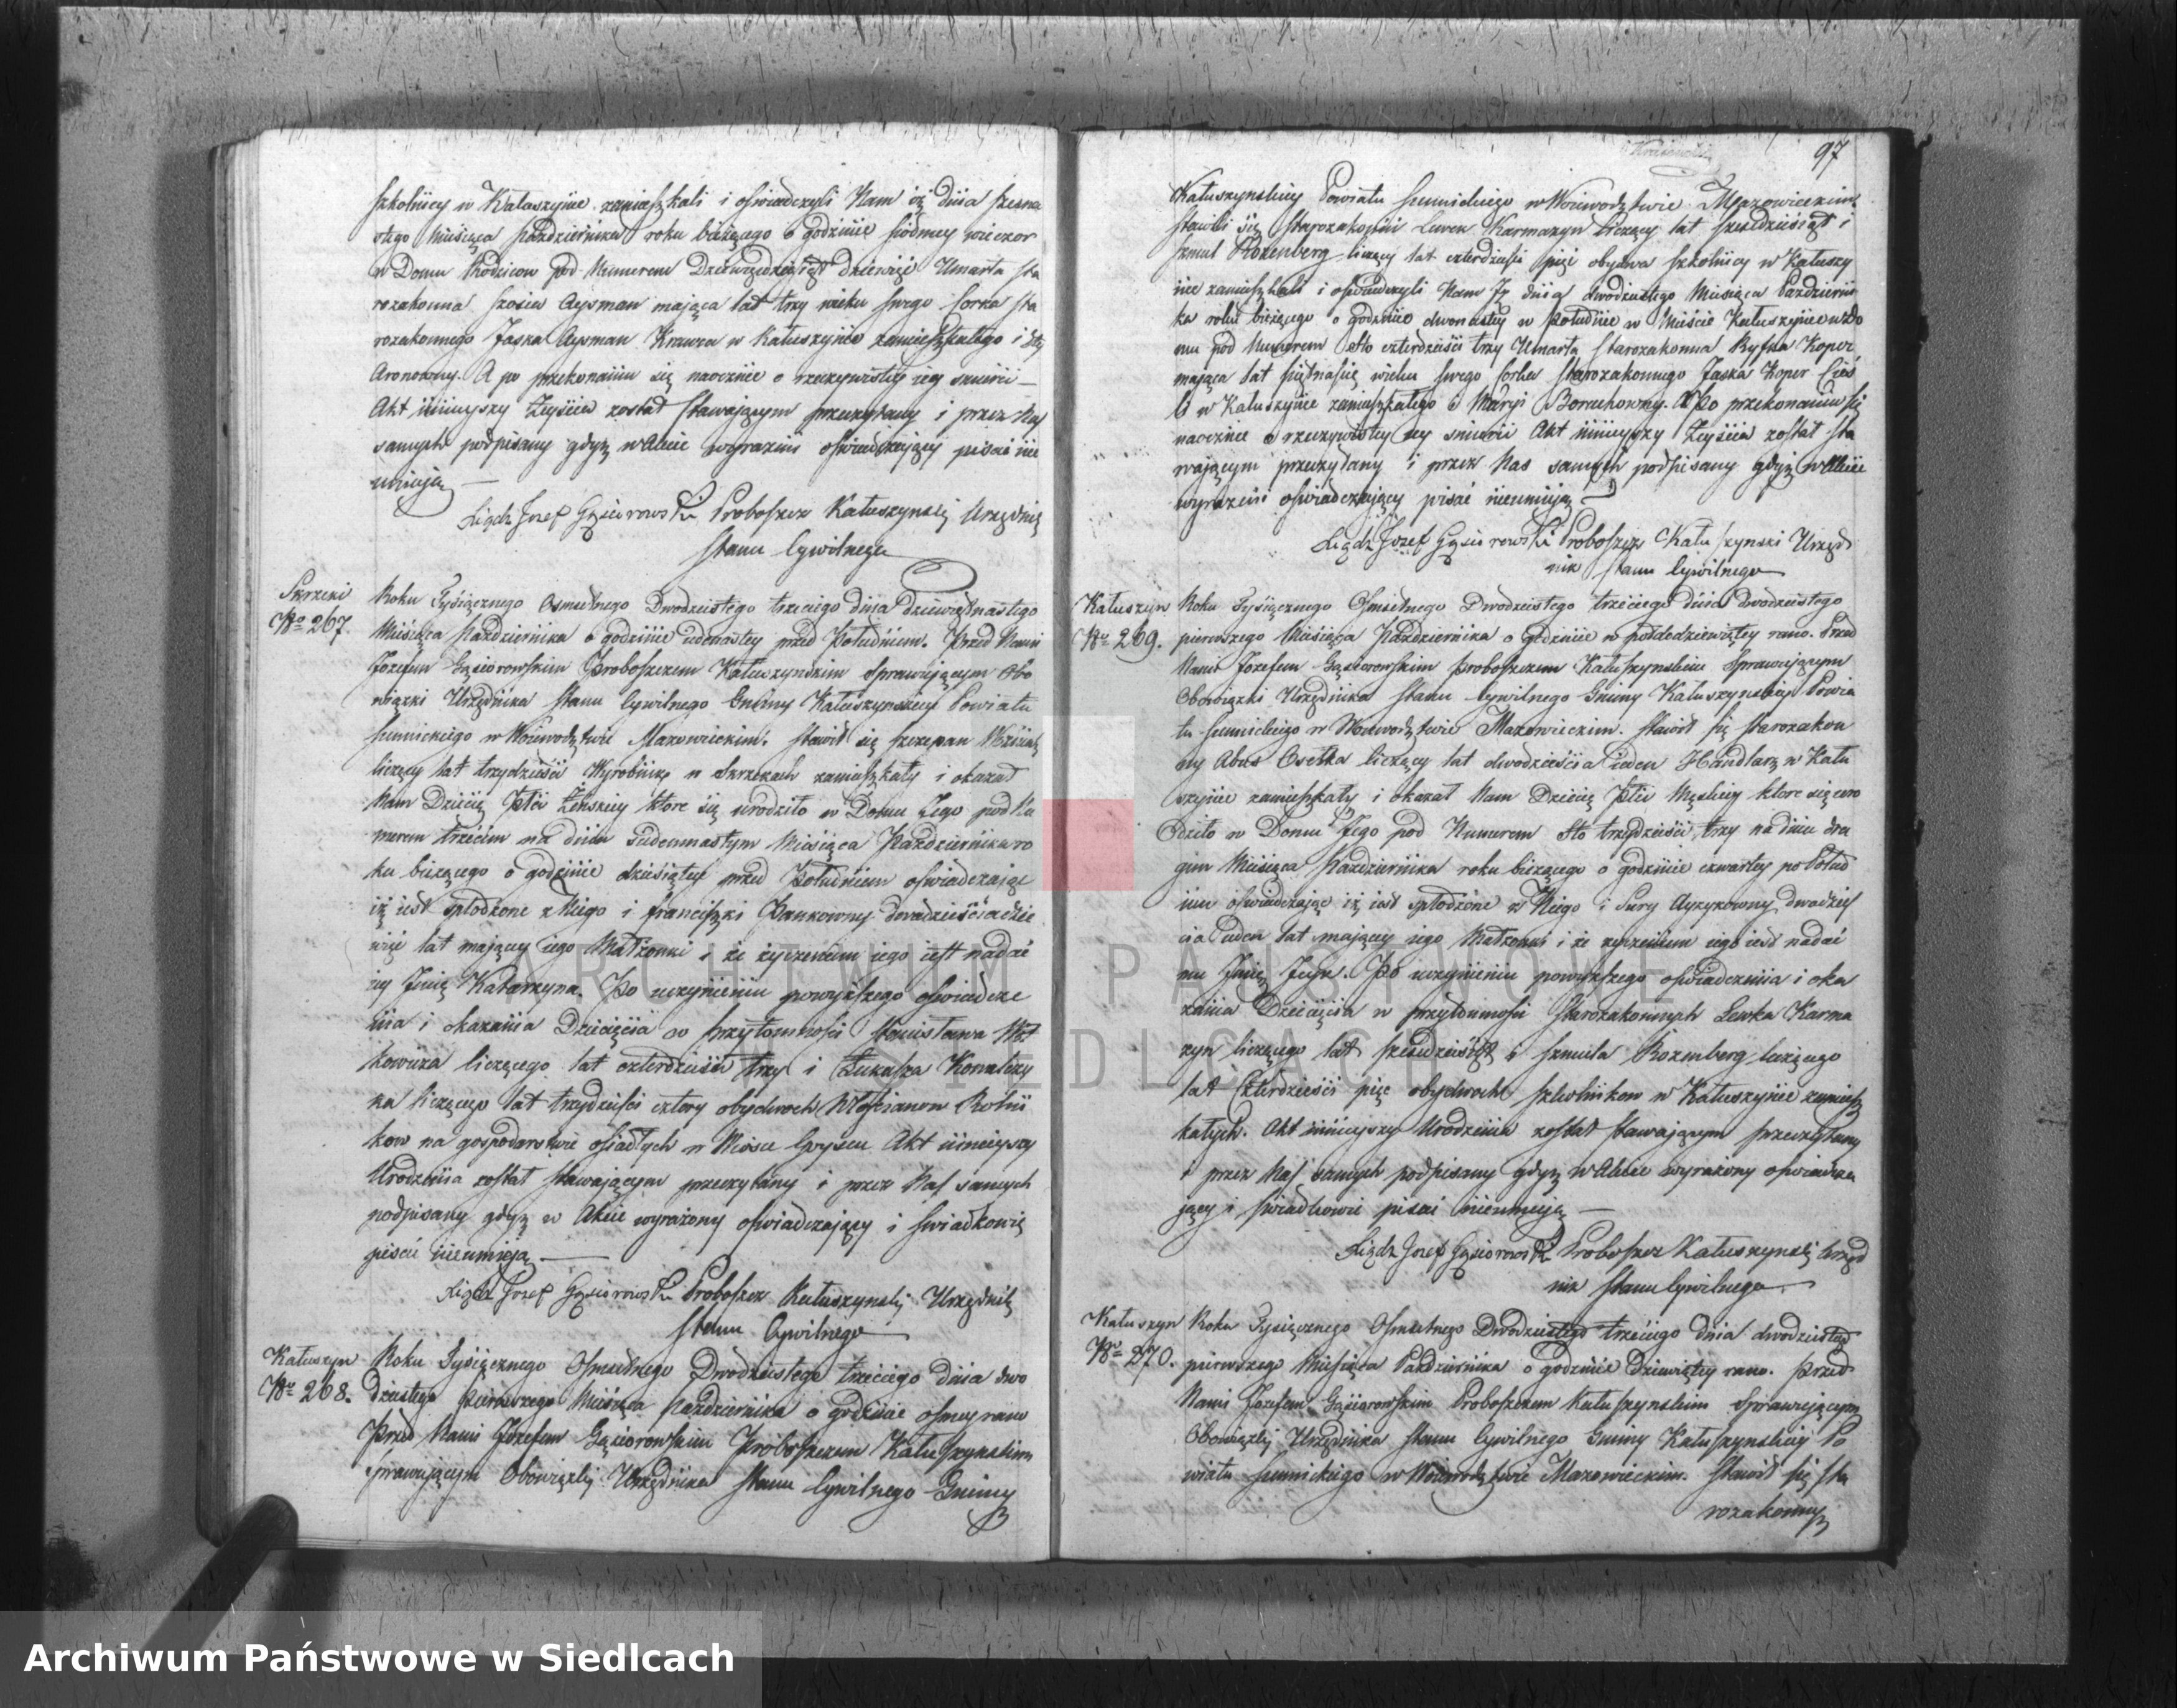 szkolnicy w Kałuszynie zamieszkali i oświadczyli Nam iż dnia szesna
stego Miesiąca Października roku bieżącego o godzinie siódmey wieczor
w Domu Rodzicow pod Numerem Dziewięćdziesiąt dziewięć Umarła sta
rozakonna Ayzman maiąca lat trzy wieku swego Corka sta
rozakonnego Jaska Ayzman Krawca w Kałuszynie zamieszkałego i
Aronowny. A po przekonaniu się naocznie o rzeczywistey iey śmierci
Akt ninieyszy Zeyścia został stawaiącym przeczytany i przez Nas
samych podpisany gdyż w Akcie wyrażeni oświadczaiący pisać nie
umieią
Xiądz Jozef Gąsiorowski Proboszcz Kałuszynski Urzędnik
Stanu Cywilnego
Skrzeki
No 267.
Roku Tysiącznego Osmsetnego Dwudziestego trzeciego dnia dziewiętnastego
Miesiąca Października o godzinie iedenastey przed Południem. Przed Nami
Jozefem Gąsiorowskim Proboszczem Kałuszynskim sprawuiącym Obo
wiązki Urzędnika Stanu Cywilnego Gminy Kałuszynskiey Powiatu
Siennickiego w Woiewodztwie Mazowieckim. Stawił się Szczepan
liczący lat trzydzieści Wyrobnik w Skrzekach zamieszkały i okazał
Nam Dziecię Płci Żeńskiey ktore się urodziło w Domu Jego pod Nu
merem trzecim na dniu siedemnastym Miesiąca Października ro
ku bieżącego o godzinie dziesiątey przed Południem oświadczaiąc
iż iest spłodzone z Niego i Franciszki Pankowny dwadzieścia dzie
więć lat maiącey iego Małżonki i że życzeniem iego iest nadać
iey Imię Katarzyna. Po uczynieniu powyższego oświadcze
nia i okazania Dziecięcia w przytomności Stanisława
liczącego lat czterdzieści trzy i Łukasza Kowalczy
ka liczącego lat trzydzieści cztery obydwoch Włościanow Rolni
kow na gospodarstwie osiadłych w Akt ninieyszy
Urodzenia został stawaiącym przeczytany i przez Nas samych
podpisany gdyż w Akcie wyrażony oświadczaiący i świadkowie
pisać nieumieią
Xiądz Jozef Gąsiorowski Proboszcz Kałuszynski Urzędnik
Stanu Cywilnego
Kałuszyn
No 268.
Roku Tysiącznego Osmsetnego Dwudziestego trzeciego dnia dwu
dziestego pierwszego Miesiąca Października o godzinie osmey rano
Przed Nami Jozefem Gąsiorowskim Proboszczem Kałuszynskim
sprawuiącym Obowiązki Urzędnika Stanu Cywilnego Gminy
97
Kałuszynskiey Powiatu Siennickiego w Woiewodztwie Mazowieckim
stawili się Starozakonni Lewek Karmazyn liczący lat sześćdziesiąt i
Szmul Rozenberg liczący lat czterdzieści pięć obydwa szkolnicy w Kałuszy
nie zamieszkali i oświadczyli Nam Iż dnia dwudziestego Miesiąca Październi
ka roku bieżącego o godzinie dwunastey w Południe w Mieście Kałuszynie w Do
mu pod Numerem Sto czterdzieści trzy Umarła Starozakonna Ryfka Koper
maiąca lat piętnaście wieku swego Corka Starozakonnego Jaska Koper Cieś
li w Kałuszynie zamieszkałego i Maryi Boruchowny. A Po przekonaniu się
naocznie o rzeczywistey iey śmierci Akt ninieyszy Zeyścia został sta
waiącym przeczytany i przez Nas samych podpisany gdyż w Akcie
wyrażeni oświadczaiący pisać nieumieią
Xiądz Jozef Gąsiorowski Proboszcz Kałuszynski Urzęd
nik Stanu Cywilnego
Kałuszyn
No 269.
Roku Tysiącznego Osmsetnego Dwudziestego trzeciego dnia dwudziestego
pierwszego Miesiąca Października o godzinie w poł do dziewiątey rano. Przed
Nami Jozefem Gąsiorowskim Proboszczem Kałuszynskim sprawuiącym
Obowiązki Urzędnika Stanu Cywilnego Gminy Kałuszynskiey Powia
tu Siennickiego w Woiewodztwie Mazowieckim. Stawił się Starozakon
ny Abus Osełka liczący lat dwadzieścia ieden Handlarz w Kału
szynie zamieszkały i okazał Nam Dziecię Płci Męskiey ktore się uro
dziło w Domu Jego pod Numerem Sto trzydzieści trzy na dniu dru
gim Miesiąca Października roku bieżącego o godzinie czwartey po Połud
niu oświadczaiąc iż iest spłodzone z Niego i Sury Ayzykowny dwadzieś
cia ieden lat maiącey iego Małżonki i że życzeniem iego iest nadać
mu Imię. Po uczynieniu powyższego oświadczenia i oka
zania Dziecięcia w przytomności Starozakonnych Lewka Karma
zyn liczącego lat sześćdziesiąt i Szmula Rozenberg liczącego
lat Czterdzieści pięć obydwoch Szkolnikow w Kałuszynie zamiesz
kałych. Akt ninieyszy Urodzenia został stawaiącym przeczytany
i przez Nas samych podpisany gdyż w Akcie wyrażony oświadcza
iący i świadkowie pisać nieumieią
Xiądz Jozef Gąsiorowski Proboszcz Kałuszynski Urzęd
nik Stanu Cywilnego
Kałuszyn
No 270.
Roku Tysiącznego Osmsetnego Dwudziestego trzeciego dnia dwudziestego
pierwszego Miesiąca Października o godzinie Dziewiątey rano. Przed
Nami Jozefem Gąsiorowskim Proboszczem Kałuszynskim sprawuiącym
Obowiązki Urzędnika Stanu Cywilnego Gminy Kałuszynskiey Po
wiatu Siennickiego w Woiewodztwie Mazowieckim. Stawił się sta
rozakonny
ARCHIWUM PAŃSTWOWE
W SIEDLCACH
Archiwum Państwowe w Siedlcach